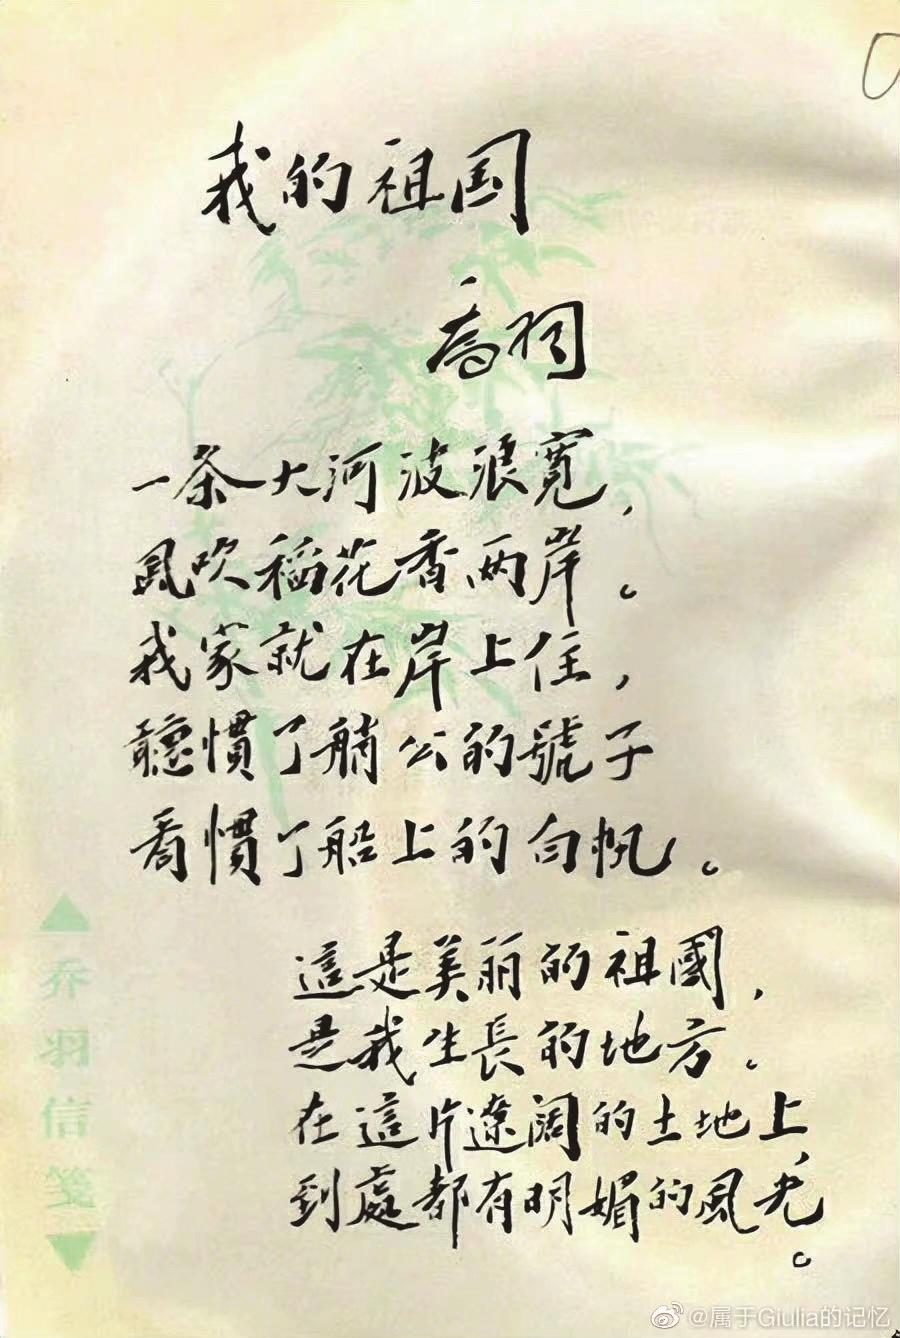 我的祖国
喬羽
一条大河波浪寬，
風吹稻花香两岸。
我家就在岸上住，
聽慣了艄公的號子
看慣了船上的白帆。
這是美丽的祖國，
是我生長的地方。
在這片遼阔的土地上，
到處都有明媚的風光。
乔羽信笺
@属于Giulia的记忆